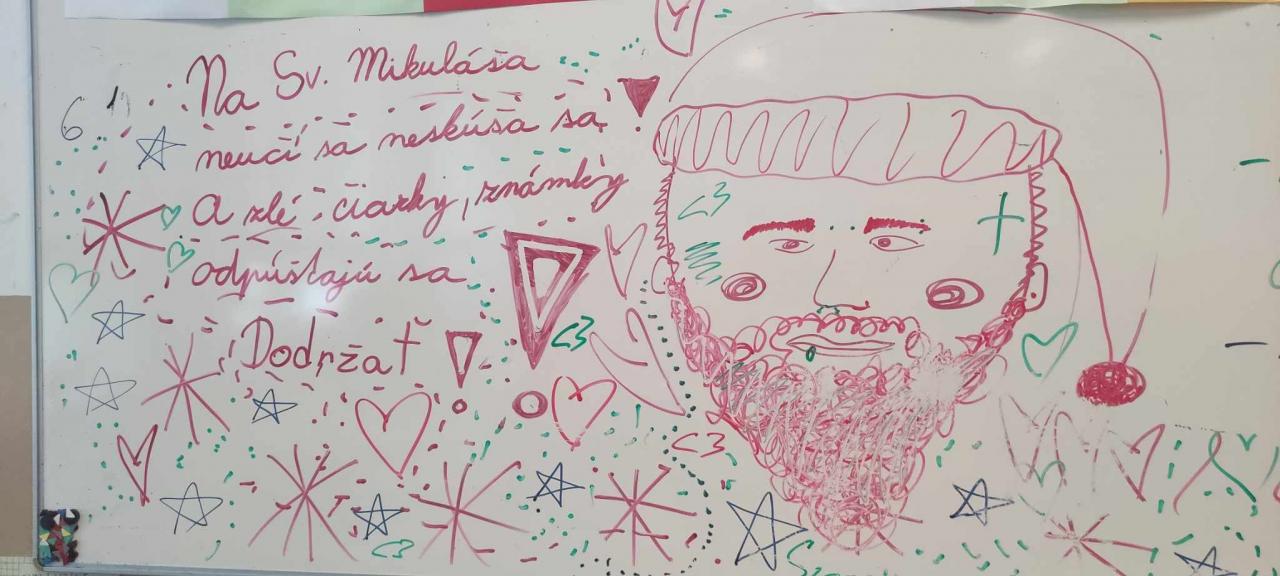 Na Sv. Mikuláša
neučí sa neskúša sa
A zlé čiarky, známky
odpúšťajú sa
Dodržať!
<3
<3
<3
<3